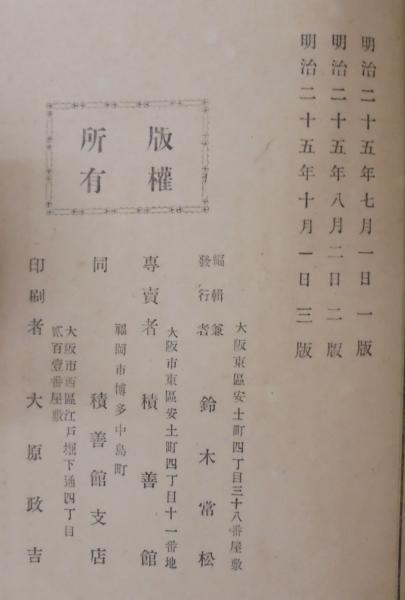 明治二十五年七月一日一版
明治二十五年八月二日二版
明治二十五年十月一日三版
版權
所有
大阪東區安土町四丁目三十八番屋敷
編輯兼
發行者 鈴木常松
大阪市東區安土町四丁目十一番地
專賣者 積善館
福岡市博多中島町
同 積善館支店
大阪市西區江戸堀下通四丁目
貳百壹番屋敷
印刷者 大原政吉